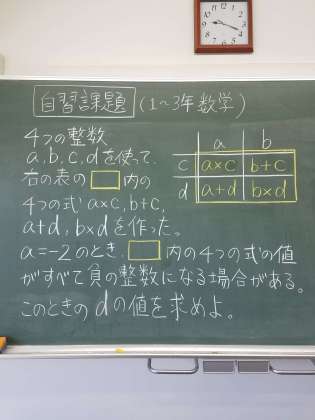 自習課題 (1~3年数学)
4つの整数
a,b,c,dを使って、
右の表の□内の
4つの式a×c,b+c,
a+d,b×dを作った。
a=-2のとき、□内の4つの式の値
がすべて負の整数になる場合がある。
このときのdの値を求めよ。
a b
c a×c b+c
d a+d b×d